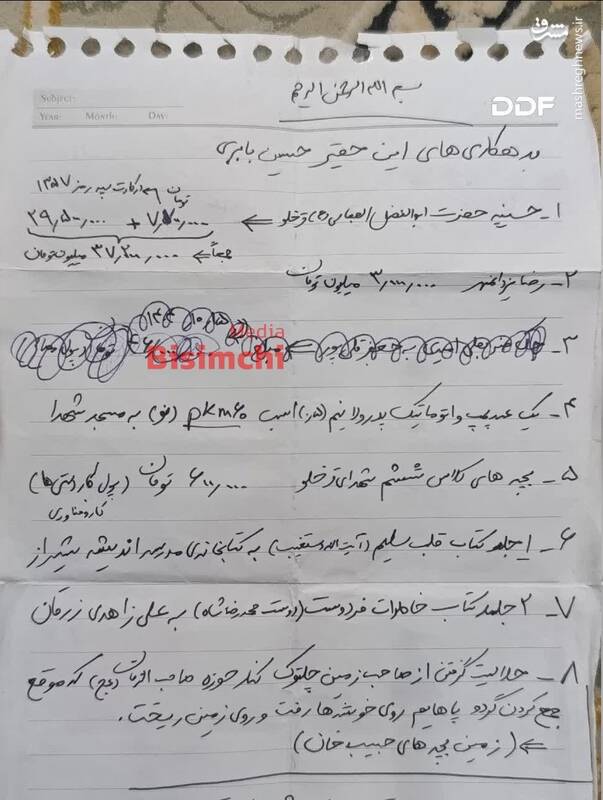 مشرق
mashreghnews.ir
DDF
بسم الله الرحمن الرحیم
Subject:
Year: Month: Day:
بدهکاری های این حقیر حسین بابری
۱ـ حسینیه حضرت ابوالفضل العباس (ع) ⇐ ۷٫۸۰۰٫۰۰۰ + ۲۹٫۵۰۰٫۰۰۰
تومان
کارت سپه رمز ۱۳۵۷
جمعاً ⇐ ۳۷٫۳۰۰٫۰۰۰ میلیون تومان
۲ـ رضا ۳٫۰۰۰٫۰۰۰ میلیون تومان
۳ـ
Media
Bisimchi
۴ـ یک عدد پمپ واتوماتیک نیم (۰٫۵) اسب pkm60 (نو) به مسجد شهدا
۵ـ بچه های کلاس ششم شهدای ۶۰۰٫۰۰۰ تومان (پول کاردستی ها)
کاروفناوری
۶ـ ۱ جلد کتاب قلب سلیم (آیت الله دستغیب) به کتابخانه ی مدرسه اندیشه شیراز
۷ـ ۲ جلد کتاب خاطرات فردوست (دوست محمدرضا شاه) به علی زاهدی زرقان
۸ـ حلالیت گرفتن از صاحب زمین کنار حوزه صاحب الزمان (عج) که موقع
جمع کردن گردو پاهایم روی خوشه ها رفت و روی زمین ریخت.
⇐ (زمین بچه های حبیب خان)